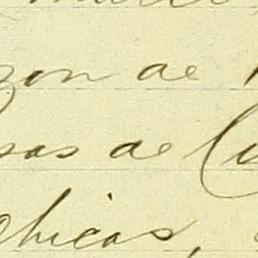 zon de
sas de Cu
chicas,